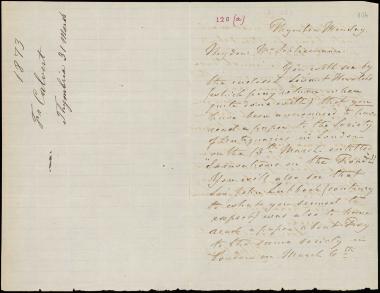 120 (a)
1873
Fr Calvert
Thymbria 31 Mars
Thymbria Monday
My dear Mr Schliemann
You will see by
the enclosed
(which pray return when
quite done with) that you
have been announced to have
read a paper to the Society
of Antiquaries in London
on the 13th March entitled
"Excavations on the
You will also see that
Sir John Lubbock (contrary
to what you seemed to
expect) was also to have
read a paper about Troy
to the same society in
London on March 6th